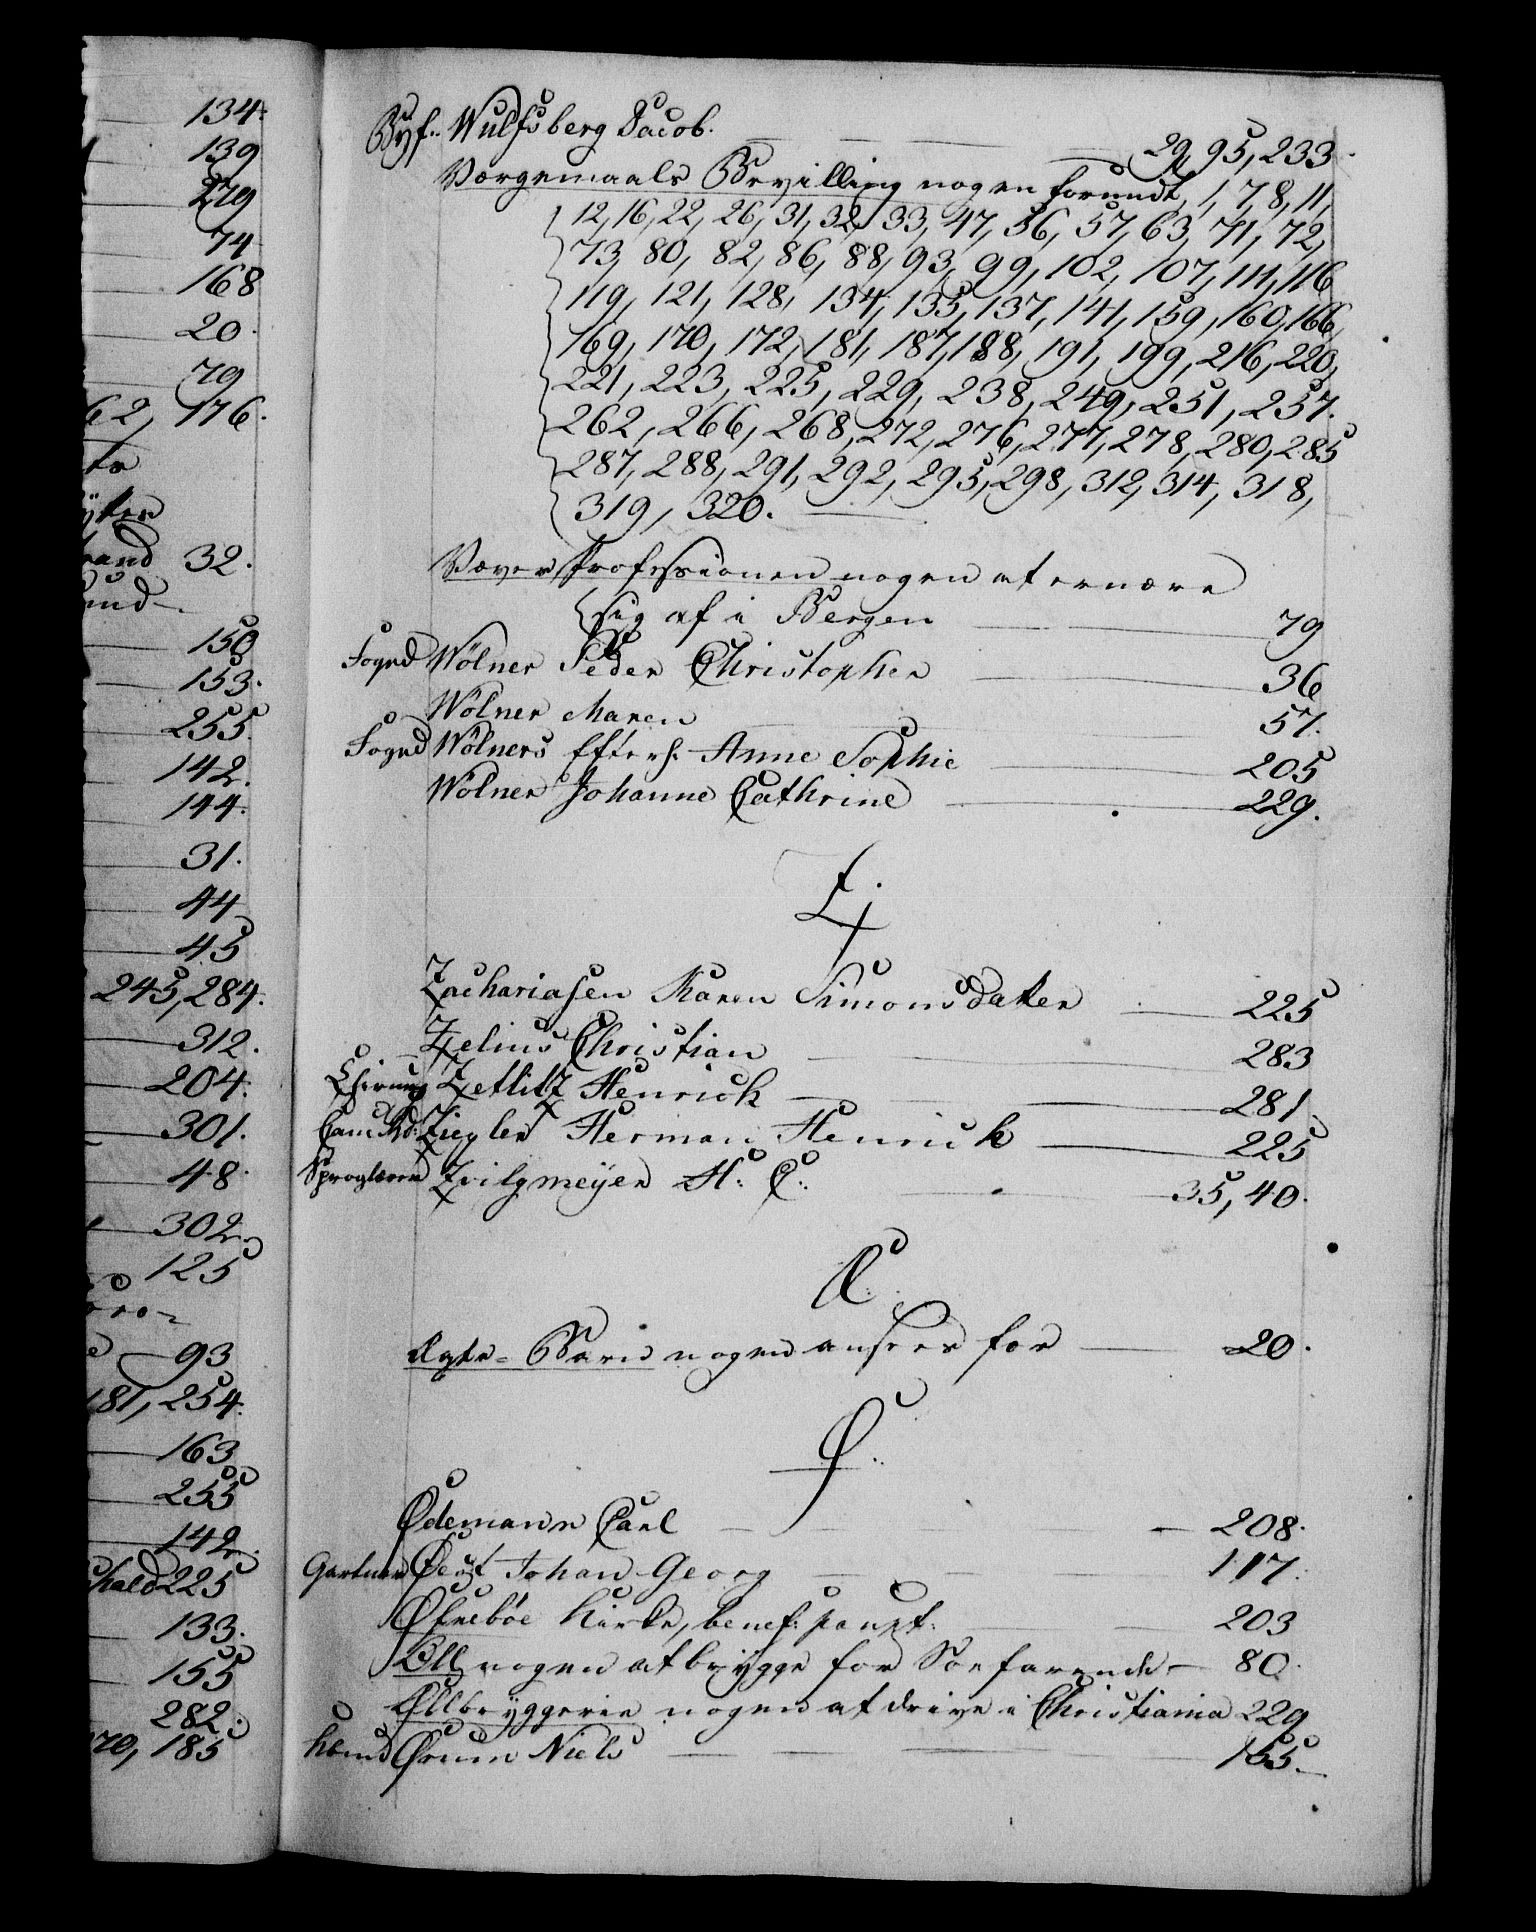 134.
139
279
74
168
20.
79
62, 176.
32.
150
153.
255.
142.
144.
31.
44
45
245, 284.
312.
204.
301.
48.
302.
125
93
181, 254.
163
255
142.
225
133.
155
282.
170, 185
Byf: Wulfsberg Jacob. 29, 95, 233.
Værgemaals Bevilling nogen forundt, 1, 7, 8, 11,
12, 16, 22, 26, 31, 32, 33, 47, 56, 57, 63, 71, 72,
73, 80, 82, 86, 88, 93, 99, 102, 107, 111, 116
119, 121, 128, 134, 135, 137, 141, 159, 160, 166,
169, 170, 172, 181, 187, 188, 191, 199, 216, 220,
221, 223, 225, 229, 238, 249, 251, 257.
262, 266, 268, 272, 276, 277, 278, 280, 285
287, 288, 291, 292, 295, 298, 312, 314, 318,
319, 320.
Væver Professionen nogen at ernære
sig af i Bergen 79
Fogd Wölner Peder Christopher 36
Wölner Maren 57.
Fogd Wölners Efterl: Anne Sophie 205
Wölner Johanne Cathrine 229.
Z.
Zachariasen Karen Simonsdatter 225
Zelius Christian 283
Chirurg Zetlitz Henrick 281
Cam: Rd: Ziegler Herman Henrick 225
Sproglærer Zwilgmeÿer H: C: 35, 40.
Æ.
Ægte-Barn nogen ansees for 20.
Ø.
Ødemann Carl 208.
Gartner Johan Georg 117.
Øfrebøe Kirke, benef: paupt: 203
Øll nogen at brÿgge for Søefarende 80.
Øllbrÿggerie nogen at drive i Christiania 229
Ørum Niels 155.